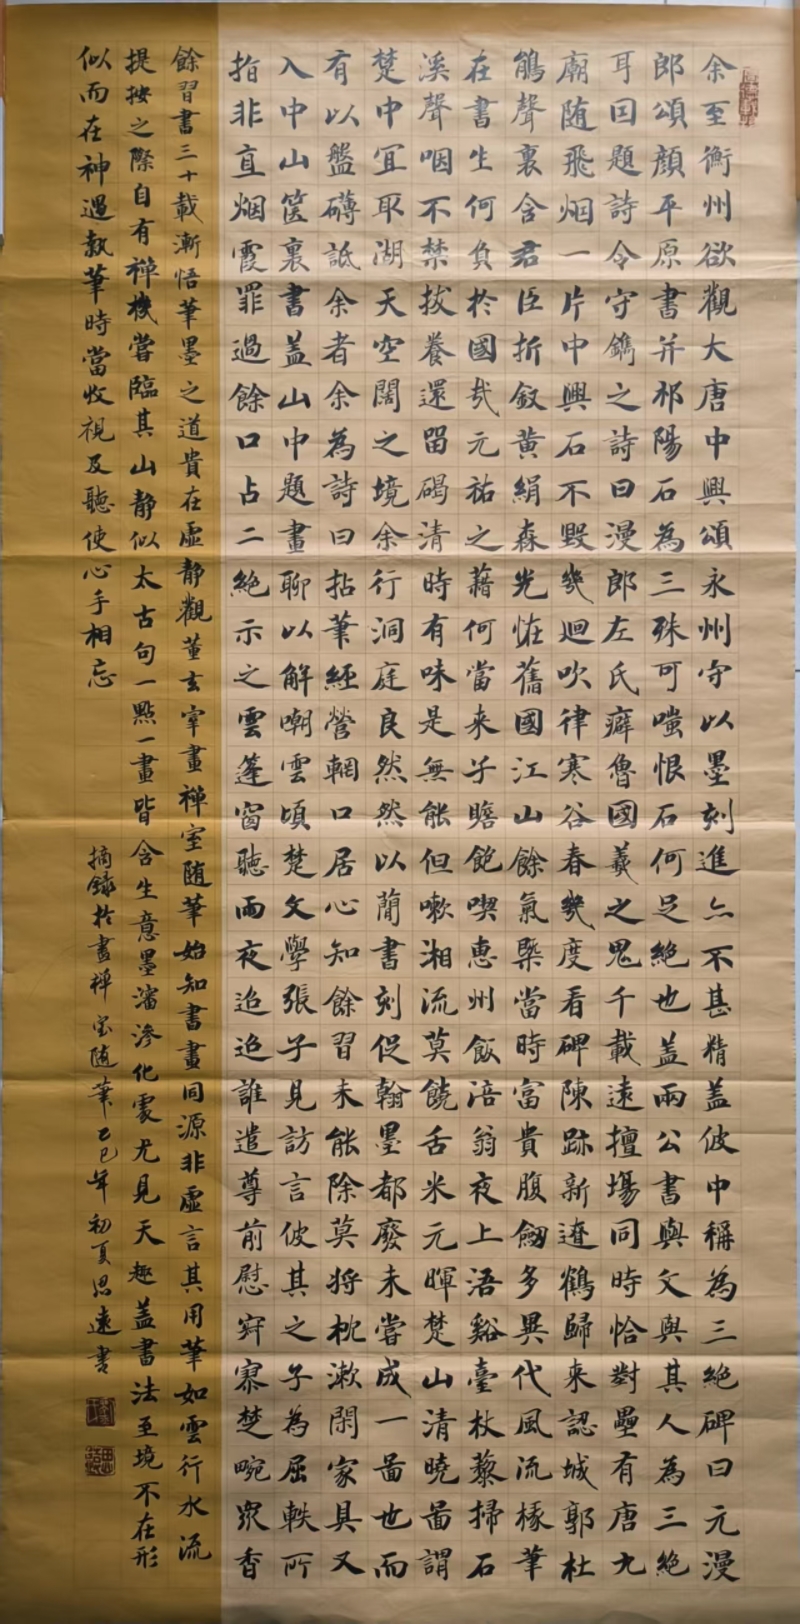 余至衡州欲觀大唐中興頌永州守以墨刻進亦不甚精蓋彼中稱為三絕碑曰元漫
郎頌顏平原書并祁陽石為三殊可嗤恨石何足絕也蓋兩公書與文與其人為三絕
耳因題詩令守鐫之詩曰漫郎左氏癖魯國羲之鬼千載遠擅場同時恰對壘有唐九
廟隨飛烟一片中興石不毀幾迴吹律寒谷春幾度看碑陳跡新遼鶴歸來認城郭杜
鵑聲裏含君臣折釵黃絹森光怪舊國江山餘氣槩當時富貴腹劒多異代風流椽筆
在書生何負於國哉元祐之藉何當來子瞻飽喫惠州飯涪翁夜上浯谿臺杖藜掃石
溪聲咽不禁拔養還留碣清時有味是無能但嗽湘流莫饒舌米元暉楚山清曉啚謂
楚中宜取湖天空闊之境余行洞庭良然然以簡書刻促翰墨都廢未嘗成一啚也而
有以盤礴詆余者余為詩曰拈筆經營輞口居心知餘習未能除莫將枕漱閑家具又
入中山篋裏書蓋山中題畫聊以解嘲雲頃楚文學張子見訪言彼其之子為屈軼所
指非直烟霞罪過餘口占二絕示之雲篷窗聽雨夜迢迢誰遣尊前慰寂寥楚畹衆香
餘習書三十載漸悟筆墨之道貴在虛靜觀董玄宰畫禅室随筆始知書畫同源非虛言其用筆如雲行水流
提按之際自有禅機嘗臨其山静似太古句一點一畫皆含生意墨瀋滲化處尤見天趣蓋書法至境不在形
似而在神遇執筆時當收視反聽使心手相忘
摘錄於畫禅室随筆乙巳年初夏思遠書